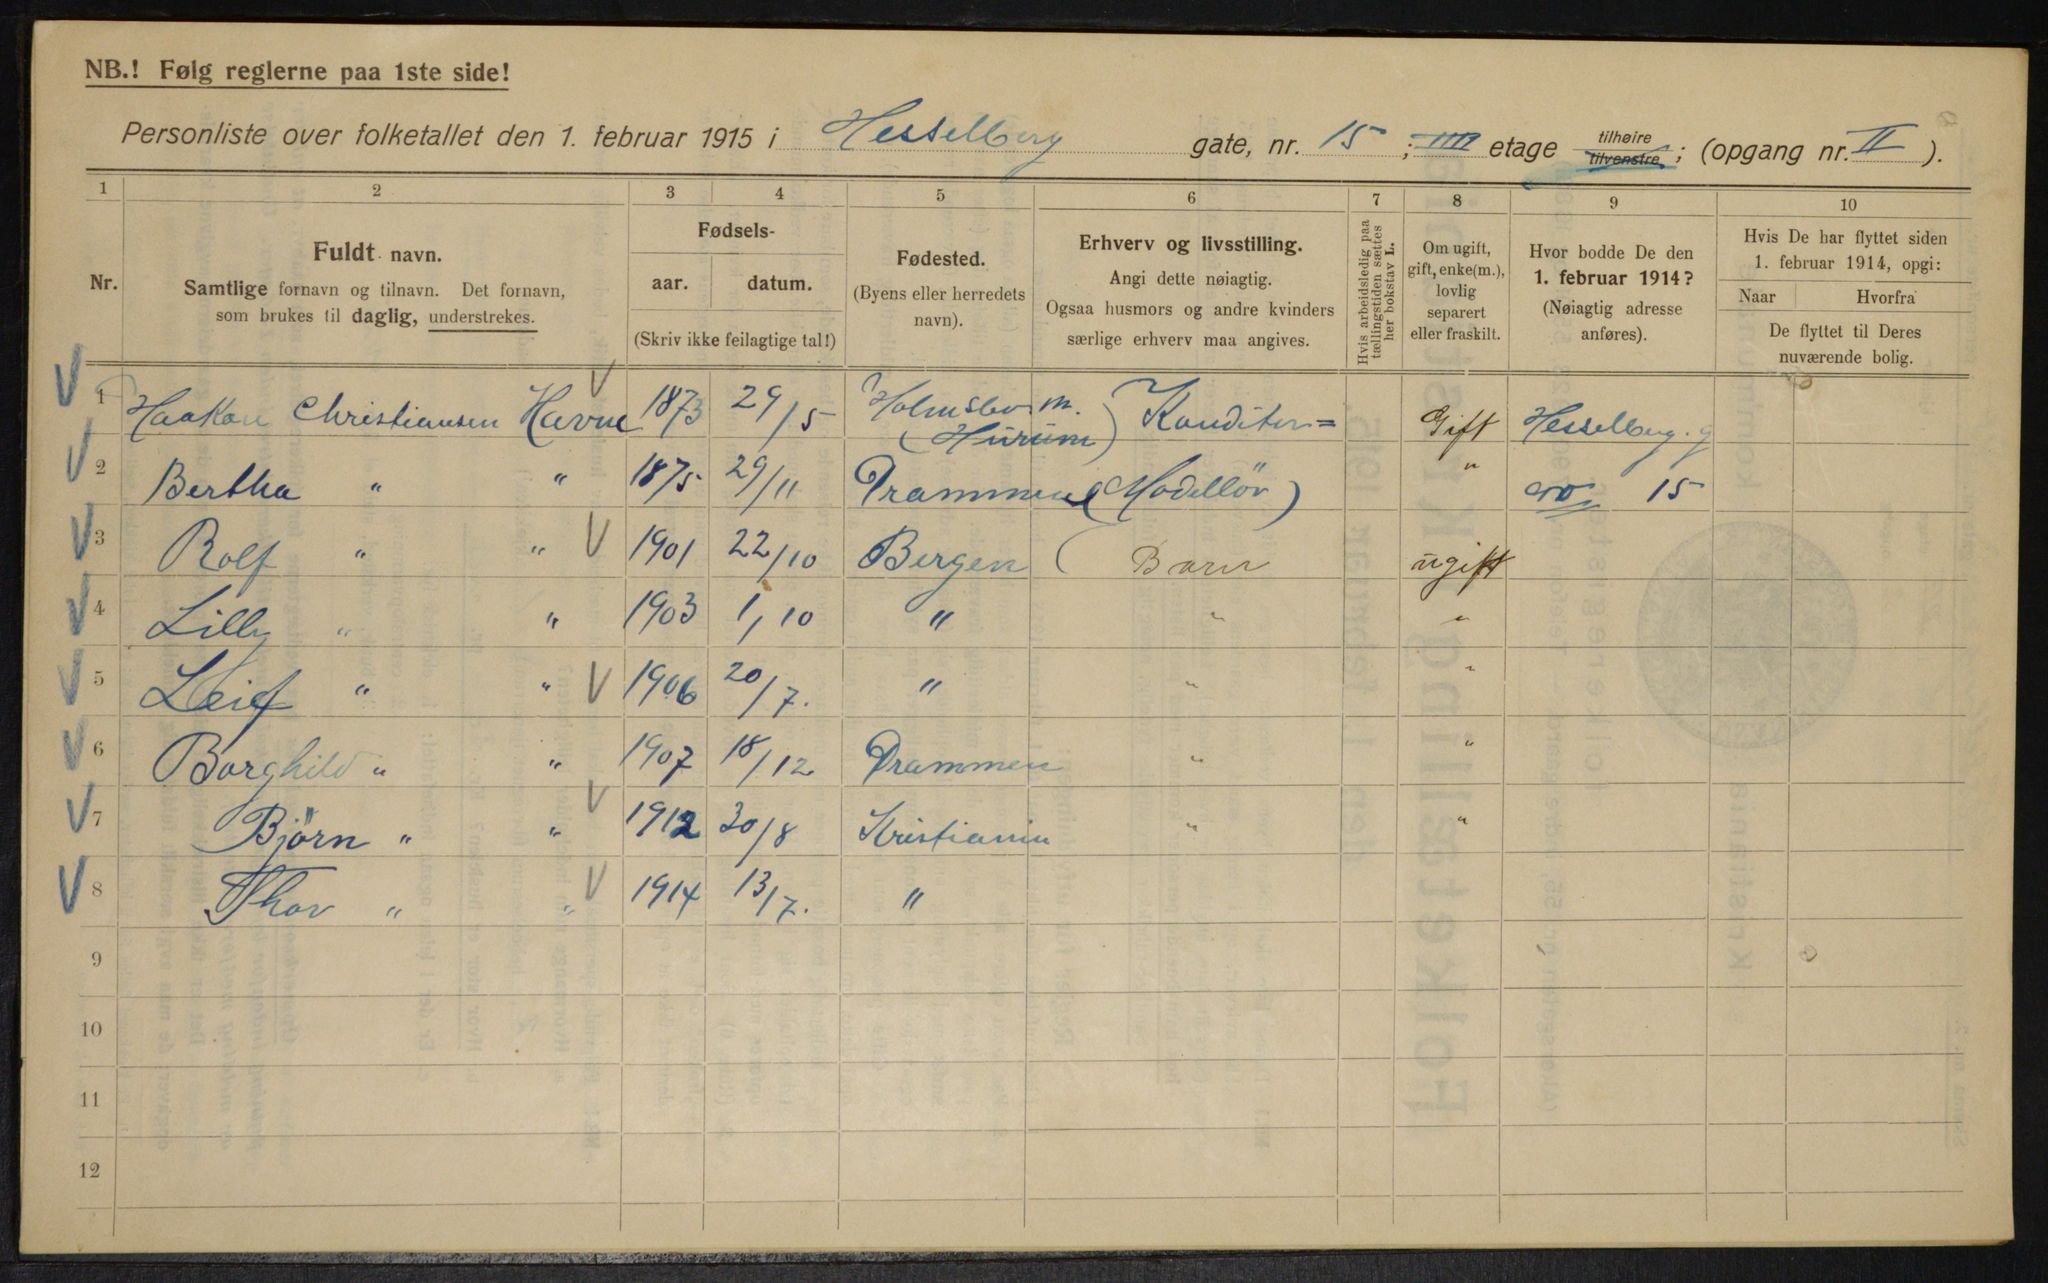 NB.! Følg reglerne paa 1ste side!
Personliste over folketallet den 1. februar 1915 i Hesselberg gate, nr. 15 ; IIII etage tilhøire tilvenstre ; (opgang nr. II ).
1 2 3 4 5 6 7 8 9 10
Nr.
Fuldt navn.
Samtlige fornavn og tilnavn. Det fornavn,
som brukes til daglig, understrekes.
Fødsels-
aar. datum.
(Skriv ikke feilagtige tal!)
Fødested.
(Byens eller herredets
navn).
Erhverv og livsstilling.
Angi dette nøiagtig.
Ogsaa husmors og andre kvinders
særlige erhverv maa angives.
Hvis arbeidsledig paa
tællingstiden sættes
her bokstav L.
Om ugift,
gift, enke(m.),
lovlig
separert
eller fraskilt.
Hvor bodde De den
1. februar 1914?
(Nøiagtig adresse
anføres).
Hvis De har flyttet siden
1. februar 1914, opgi:
Naar Hvorfra
De flyttet til Deres
nuværende bolig.
1 Haakon Christiansen Havne 1873 29/5 Holmsbo m. (Hurum) Konditor= Gift Hesselberg. g
2 Bertha " " 1875 29/11 Drammen ( ) " 15
3 Rolf " " 1901 22/10 Bergen ( Barn ugift
4 Lilly " " 1903 1/10 " " "
5 Leif " " 1906 20/7. " " "
6 Borghild " " 1907 18/12 Drammen " "
7 Björn " " 1912 30/8 Kristiania " "
8 Thor " " 1914 13/7. "
9
10
11
12